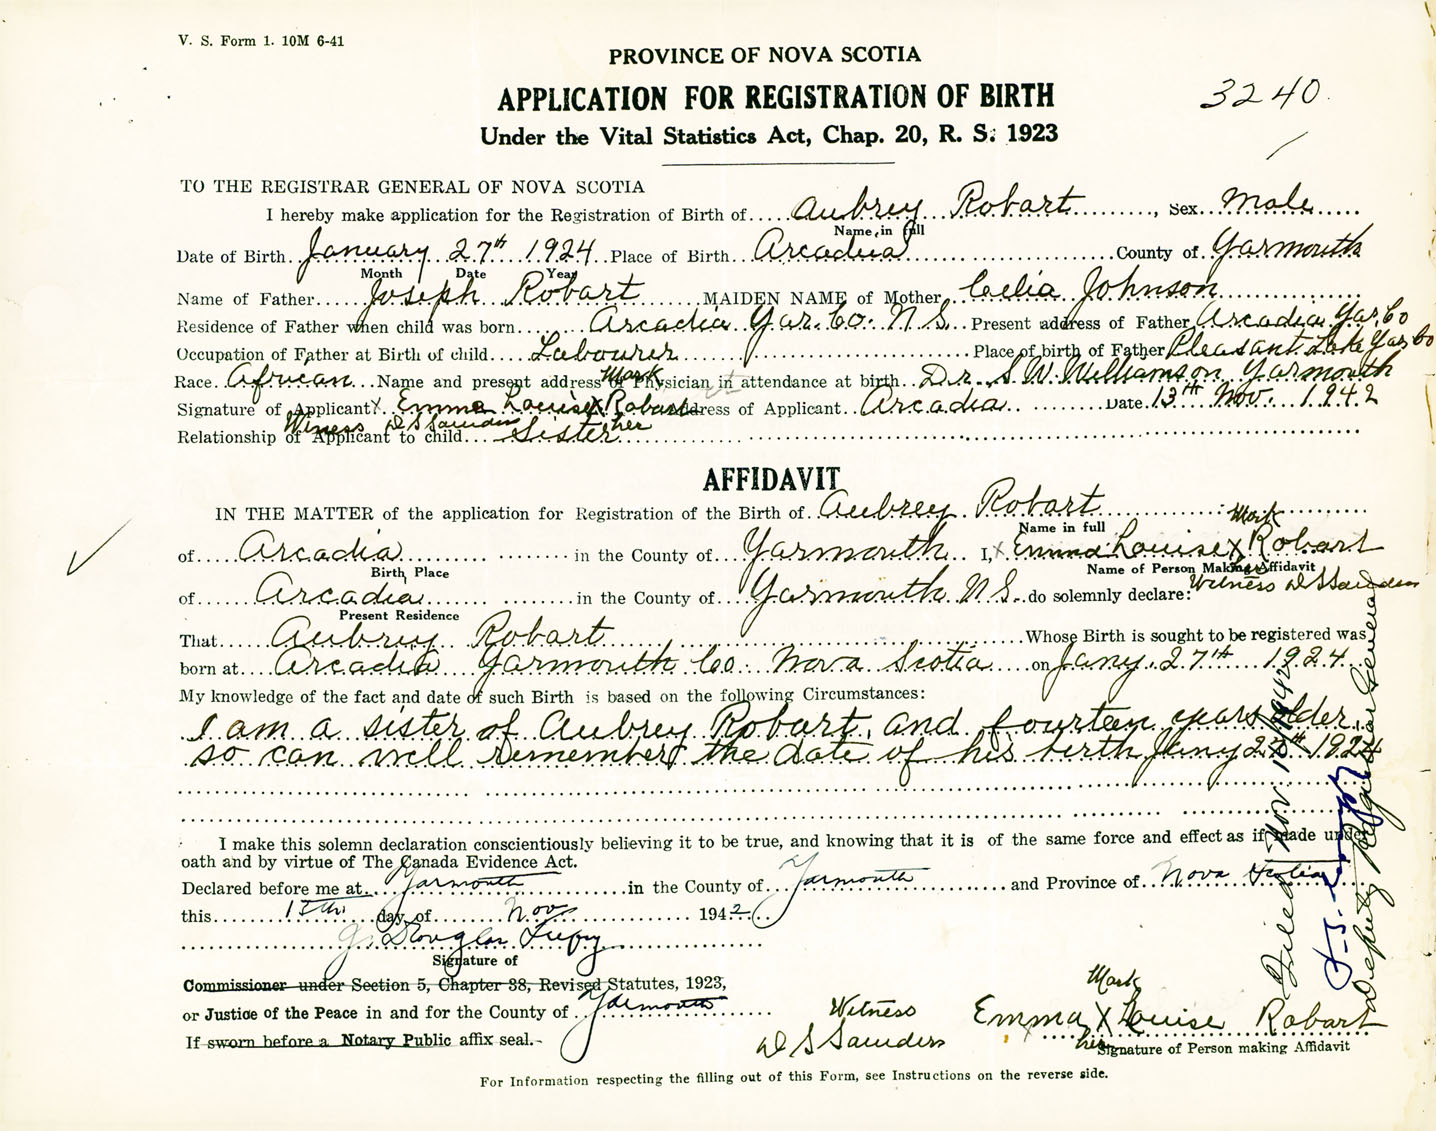 V. S. Form 1. 10M 6-41
PROVINCE OF NOVA SCOTIA
APPLICATION FOR REGISTRATION OF BIRTH
3240
Under the Vital Statistics Act, Chap. 20, R. S. 1923
TO THE REGISTRAR GENERAL OF NOVA SCOTIA
I hereby make application for the Registration of Birth of Aubrey Robart, Sex Male
Name in full
Date of Birth January 27th 1924 Place of Birth Arcadia County of Yarmouth
Month Date Year
Name of Father Joseph Robart MAIDEN NAME of Mother Celia Johnson
Residence of Father when child was born Arcadia Yar. Co. N.S. Present address of Father Arcadia Yar. Co
Occupation of Father at Birth of child Labourer Place of birth of Father Pleasant Lake Yar Co
Race African Name and present address of Physician in attendance at birth Dr. S. W. Williamson Yarmouth
Mark
Signature of Applicant x Emma Louise X Robart Address of Applicant Arcadia Date 13th Nov. 1942
Witness D S Saunders her
Relationship of Applicant to child Sister
AFFIDAVIT
IN THE MATTER of the application for Registration of the Birth of Aubrey Robart
Name in full Mark
of Arcadia in the County of Yarmouth I, x Emma Louise X Robart
Birth Place Name of Person Making Affidavit
her Witness D S Saunders
of Arcadia in the County of Yarmouth N.S. do solemnly declare:
Present Residence
That Aubrey Robart Whose Birth is sought to be registered was
born at Arcadia Yarmouth Co. Nova Scotia on Jany. 27th 1924
My knowledge of the fact and date of such Birth is based on the following Circumstances:
I am a sister of Aubrey Robart, and fourteen years older,
so can well remember the date of his birth Jany 27th 1924
I make this solemn declaration conscientiously believing it to be true, and knowing that it is of the same force and effect as if made under
oath and by virtue of The Canada Evidence Act.
Declared before me at Yarmouth in the County of Yarmouth and Province of Nova Scotia
this 13th day of Nov 1942
Douglas
Signature of
Commissioner under Section 5, Chapter 38, Revised Statutes, 1923,
or Justice of the Peace in and for the County of Yarmouth
If sworn before a Notary Public affix seal.-
Witness
D S Saunders
Mark
Emma X Louise Robart
her
Signature of Person making Affidavit
For Information respecting the filling out of this Form, see Instructions on the reverse side.
Filed Nov. 1942
Deputy Registrar General